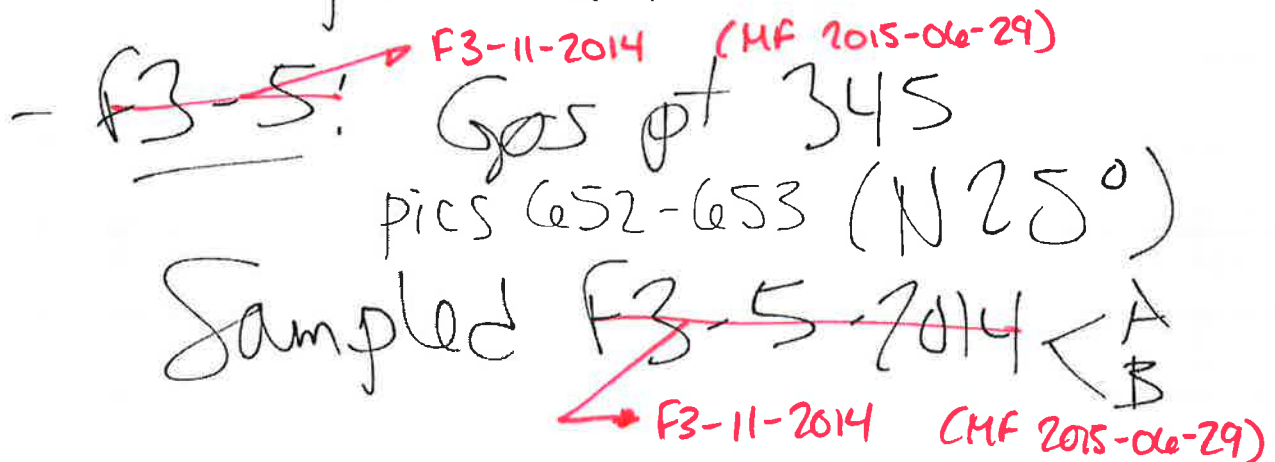 F3-11-2014 (MF 2015-06-29)
- F3-5: Gps pt 345
pics 652-653 (N 25°)
Sampled F3-5-2014 < A
B
F3-11-2014 (MF 2015-06-29)